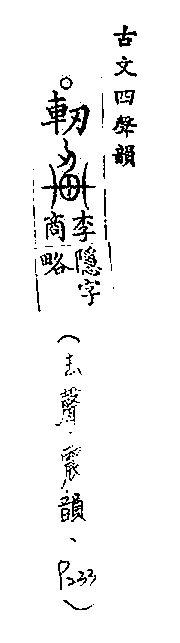 古文四聲韻
軔
李商隱字略
(去聲.震韻、P233)